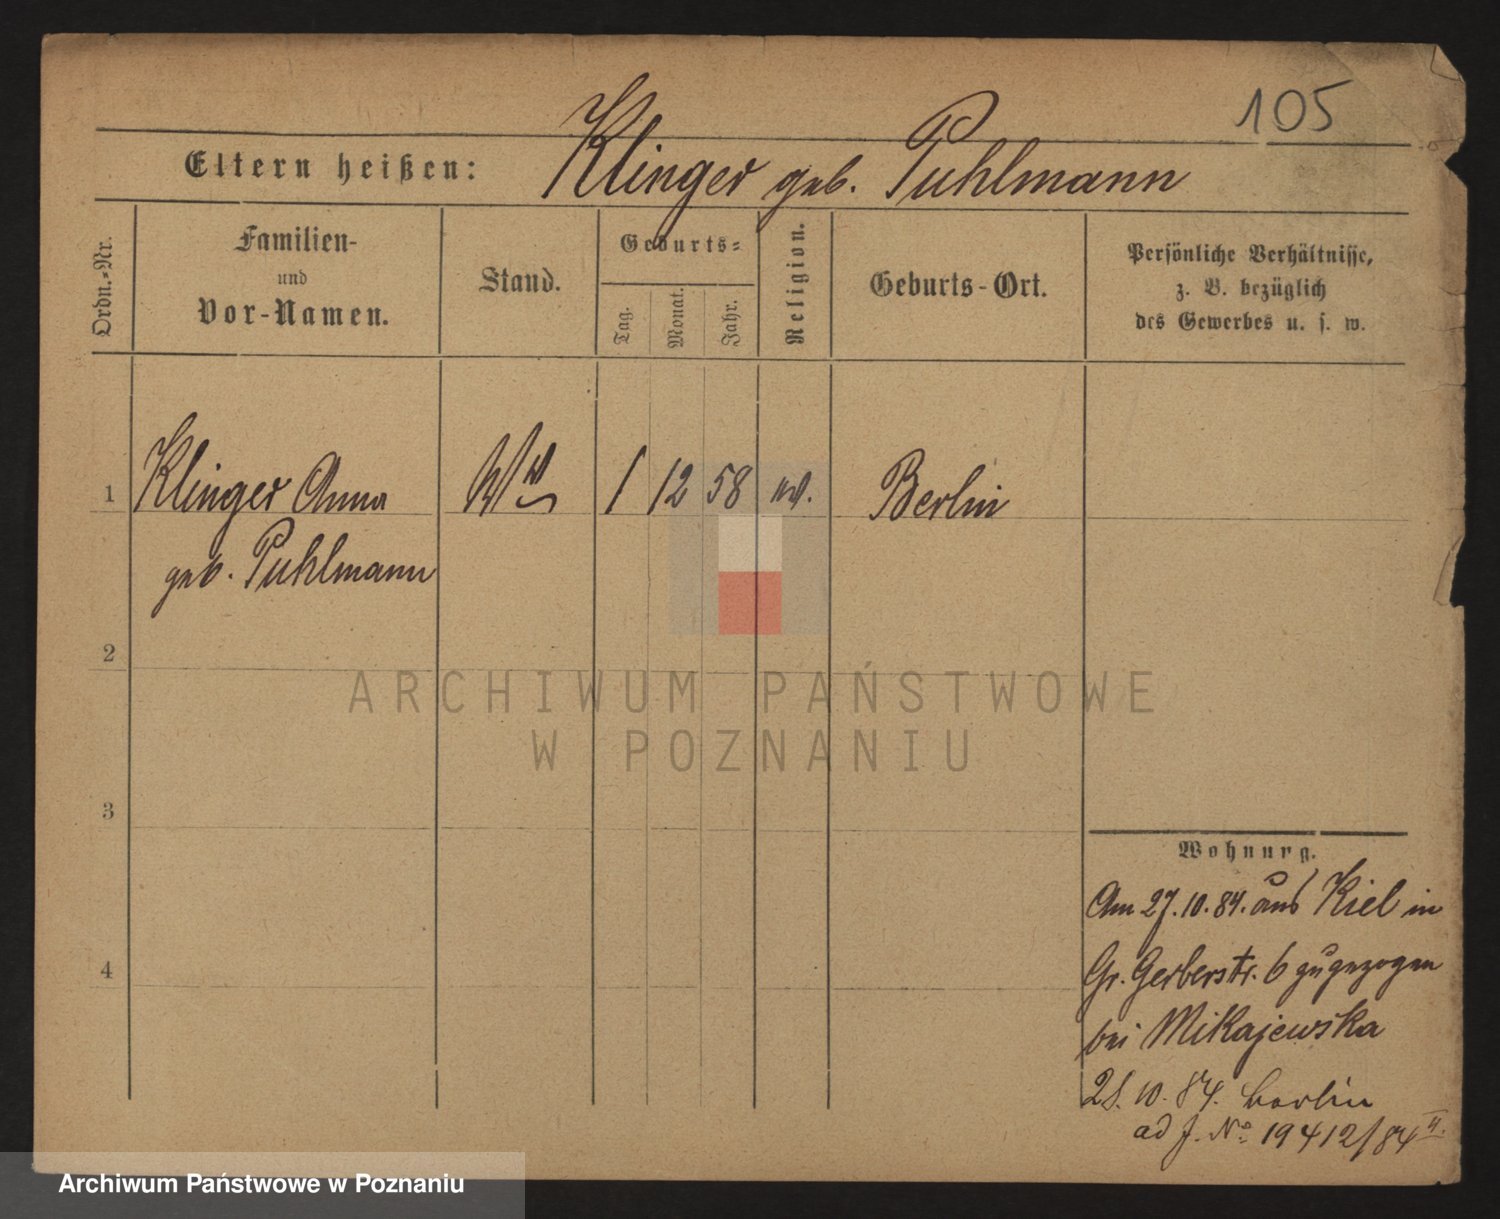 105
Eltern heißen: Klinger geb. Puhlmann
Ordn.-Nr.
Familien-
und
Vor-Namen.
Stand.
Geburts-
Tag.
Monat.
Jahr.
Religion.
Geburts-Ort.
Persönliche Verhältnisse,
z. B. bezüglich
des Gewerbes u. s. w.
1 Klinger Anna Ww 1 12 58 ev. Berlin
geb. Puhlmann
2
3
4
ARCHIWUM PAŃSTWOWE
W POZNANIU
Wohnung.
Am 27.10.84. aus Kiel in
Gr. Gerberstr. 6 zugezogen
bei Mikajewska
28.10.84. Berlin
ad J. No 19412/84 II.
Archiwum Państwowe w Poznaniu